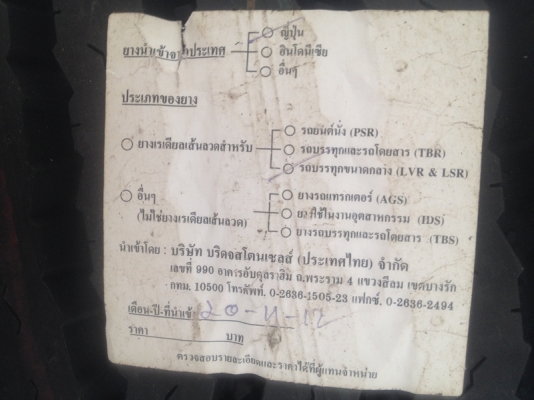 ยางนำเข้าจากประเทศ
ญี่ปุ่น
อินโดนีเซีย
อื่นๆ
ประเภทของยาง
ยางเรเดียลเส้นลวดสำหรับ
รถยนต์นั่ง (PSR)
รถบรรทุกและรถโดยสาร (TBR)
รถบรรทุกขนาดกลาง (LVR & LSR)
อื่นๆ
(ไม่ใช่ยางเรเดียลเส้นลวด)
ยางรถแทรกเตอร์ (AGS)
ยางใช้ในงานอุตสาหกรรม (IDS)
ยางรถบรรทุกและรถโดยสาร (TBS)
นำเข้าโดย : บริษัท บริดจสโตนเซลส์ (ประเทศไทย) จำกัด
เลขที่ 990 อาคารอับดุลราฮิม ถ.พระราม 4 แขวงสีลม เขตบางรัก
กทม. 10500 โทรศัพท์. 0-2636-1505-23 แฟกซ์. 0-2636-2494
เดือน-ปี-ที่นำเข้า
ราคา บาท
ตรวจสอบรายละเอียดและราคาได้ที่ผู้แทนจำหน่าย